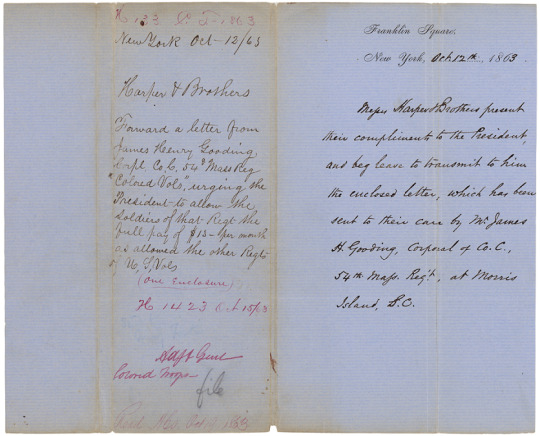 H 133 1863
New York Oct-12/63
Harper & Brothers
Forward a letter from
James Henry Gooding,
Corpl. Co. C. 54" Mass Reg
"Colored Vols", urging the
President to allow the
soldiers of that Regt the
full pay of $13- per month
as allowed the other Regts
of U.S. Vols
(One Enclosure)
H 1423 Oct 15/63
Adjt Genl
Colored Troops
file
Franklin Square.
New York, Oct 12th 1863.
Messrs Harper & Brothers present
their compliments to the President,
and beg leave to transmit to him
the enclosed letter, which has been
sent to their care by Mr. James
H. Gooding, Corporal of Co. C.,
54th Mass. Reg't, at Morris
Island, S.C.